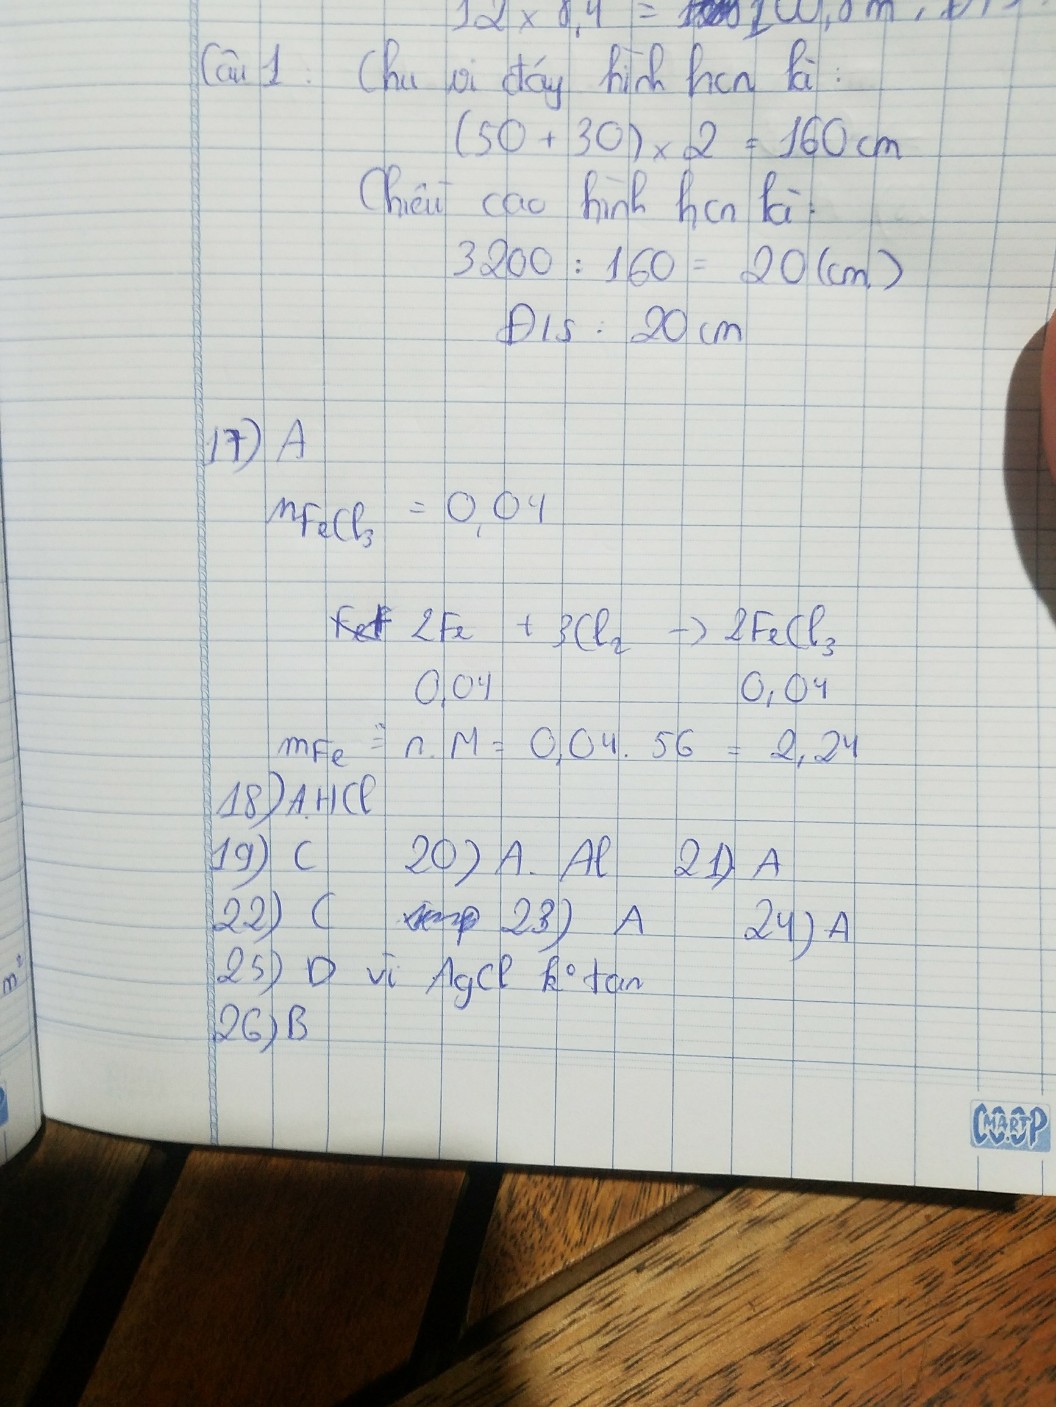 12 × 8,4 = 100,8m
Câu 1 : Chu vi đáy hình hcn là :
(50 + 30) × 2 = 160 cm
Chiều cao hình hcn là :
3200 : 160 = 20 (cm)
Đ/s : 20 cm
17) A
nFeCl3 = 0,04
2Fe + 3Cl2 -> 2FeCl3
0,04 0,04
mFe = n.M = 0,04. 56 = 2,24
18) A.HCl
19) C 20) A. Al 21) A
22) C 23) A 24) A
25) D vì AgCl ko tan
26) B
m²
SMART